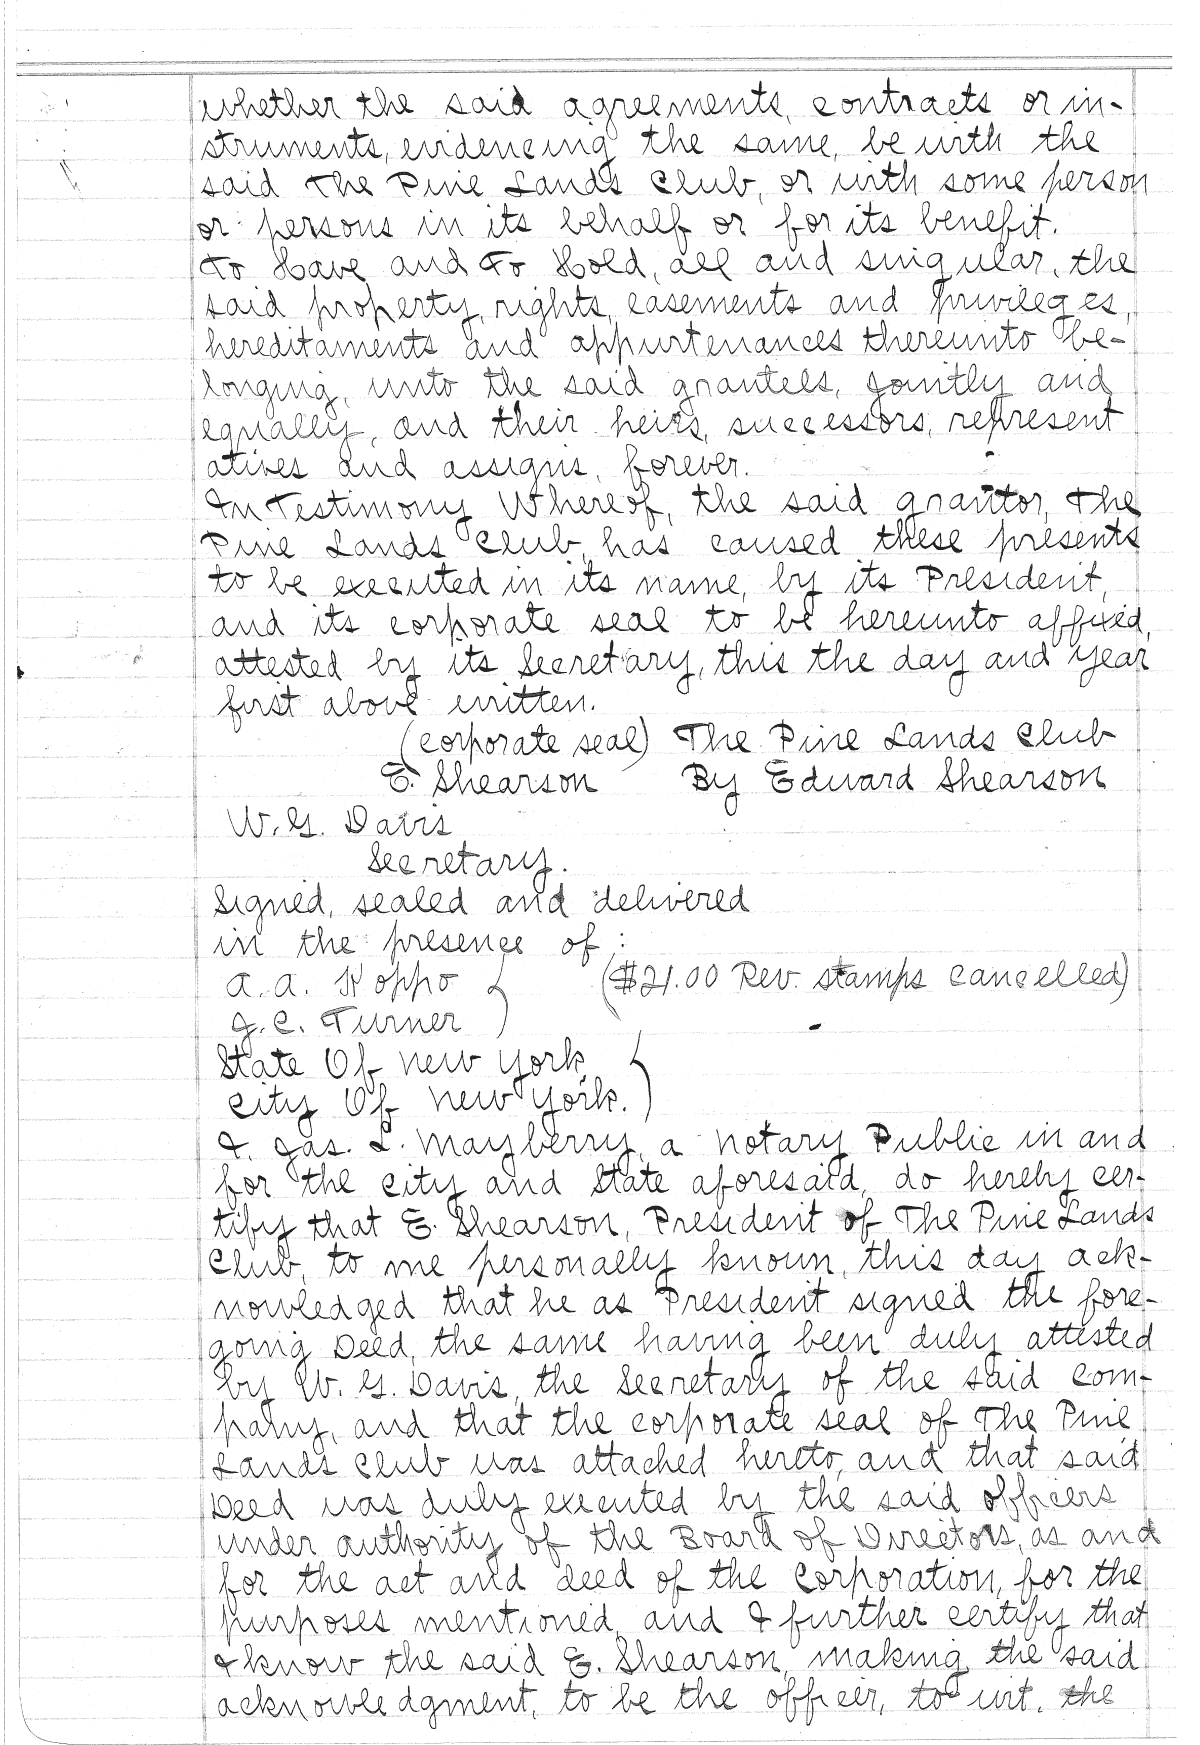 whether the said agreements, contracts or in-
struments, evidencing the same, be with the
said The Pine Lands Club, or with some person
or persons in its behalf or for its benefit.
To Have and To Hold, all and singular, the
said property, rights, easements and privileges,
hereditaments and appurtenances thereunto be-
longing, unto the said grantees, jointly and
equally, and their heirs, successors, represent
atives and assigns, forever.
In Testimony Whereof, the said grantor, The
Pine Lands Club, has caused these presents
to be executed in its name, by its President,
and its corporate seal to be hereunto affixed,
attested by its Secretary, this the day and year
first above written.
(corporate seal) The Pine Lands Club
E. Shearson By Edward Shearson
W.G. Davis
Secretary.
Signed, sealed and delivered
in the presence of:
A.A. Koppo
J.C. Turner
($21.00 Rev. stamps cancelled)
State Of New York,
City Of New York.
I, Jas. L. Mayberry, a Notary Public in and
for the City and State aforesaid, do hereby cer-
tify that E. Shearson, President of The Pine Lands
Club, to me personally known, this day ack-
nowledged that he as President signed the fore-
going Deed, the same having been duly attested
by W. G. Davis, the Secretary of the said Com-
pany, and that the corporate seal of The Pine
Lands Club was attached hereto, and that said
Deed was duly executed by the said officers
under authority of the Board of Directors, as and
for the act and deed of the Corporation, for the
purposes mentioned, and I further certify that
I know the said E. Shearson, making the said
acknowledgment, to be the officer, to wit, the